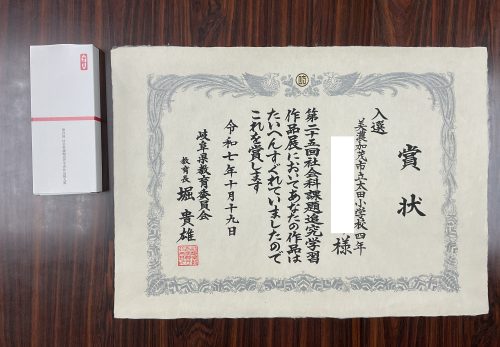 賞状
入選
美濃加茂市立太田小学校四年
様
第二十五回社会科課題追究学習
作品展においてあなたの作品は
たいへんすぐれていましたので
これを賞します
令和七年十月十九日
岐阜県教育委員会
教育長 堀 貴雄